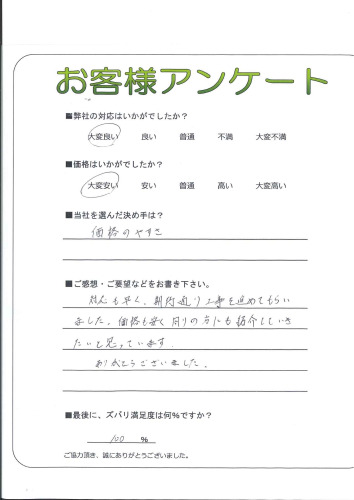 お客様アンケート
■弊社の対応はいかがでしたか？
大変良い 良い 普通 不満 大変不満
■価格はいかがでしたか？
大変安い 安い 普通 高い 大変高い
■当社を選んだ決め手は？
価格のやすさ
■ご感想・ご要望などをお書き下さい。
対応も早く、期待通り工事を進めてもらい
ました。価格も安く周りの方にも紹介していき
たいと思っています。
ありがとうございました。
■最後に、ズバリ満足度は何％ですか？
100 ％
ご協力頂き、誠にありがとうございました。